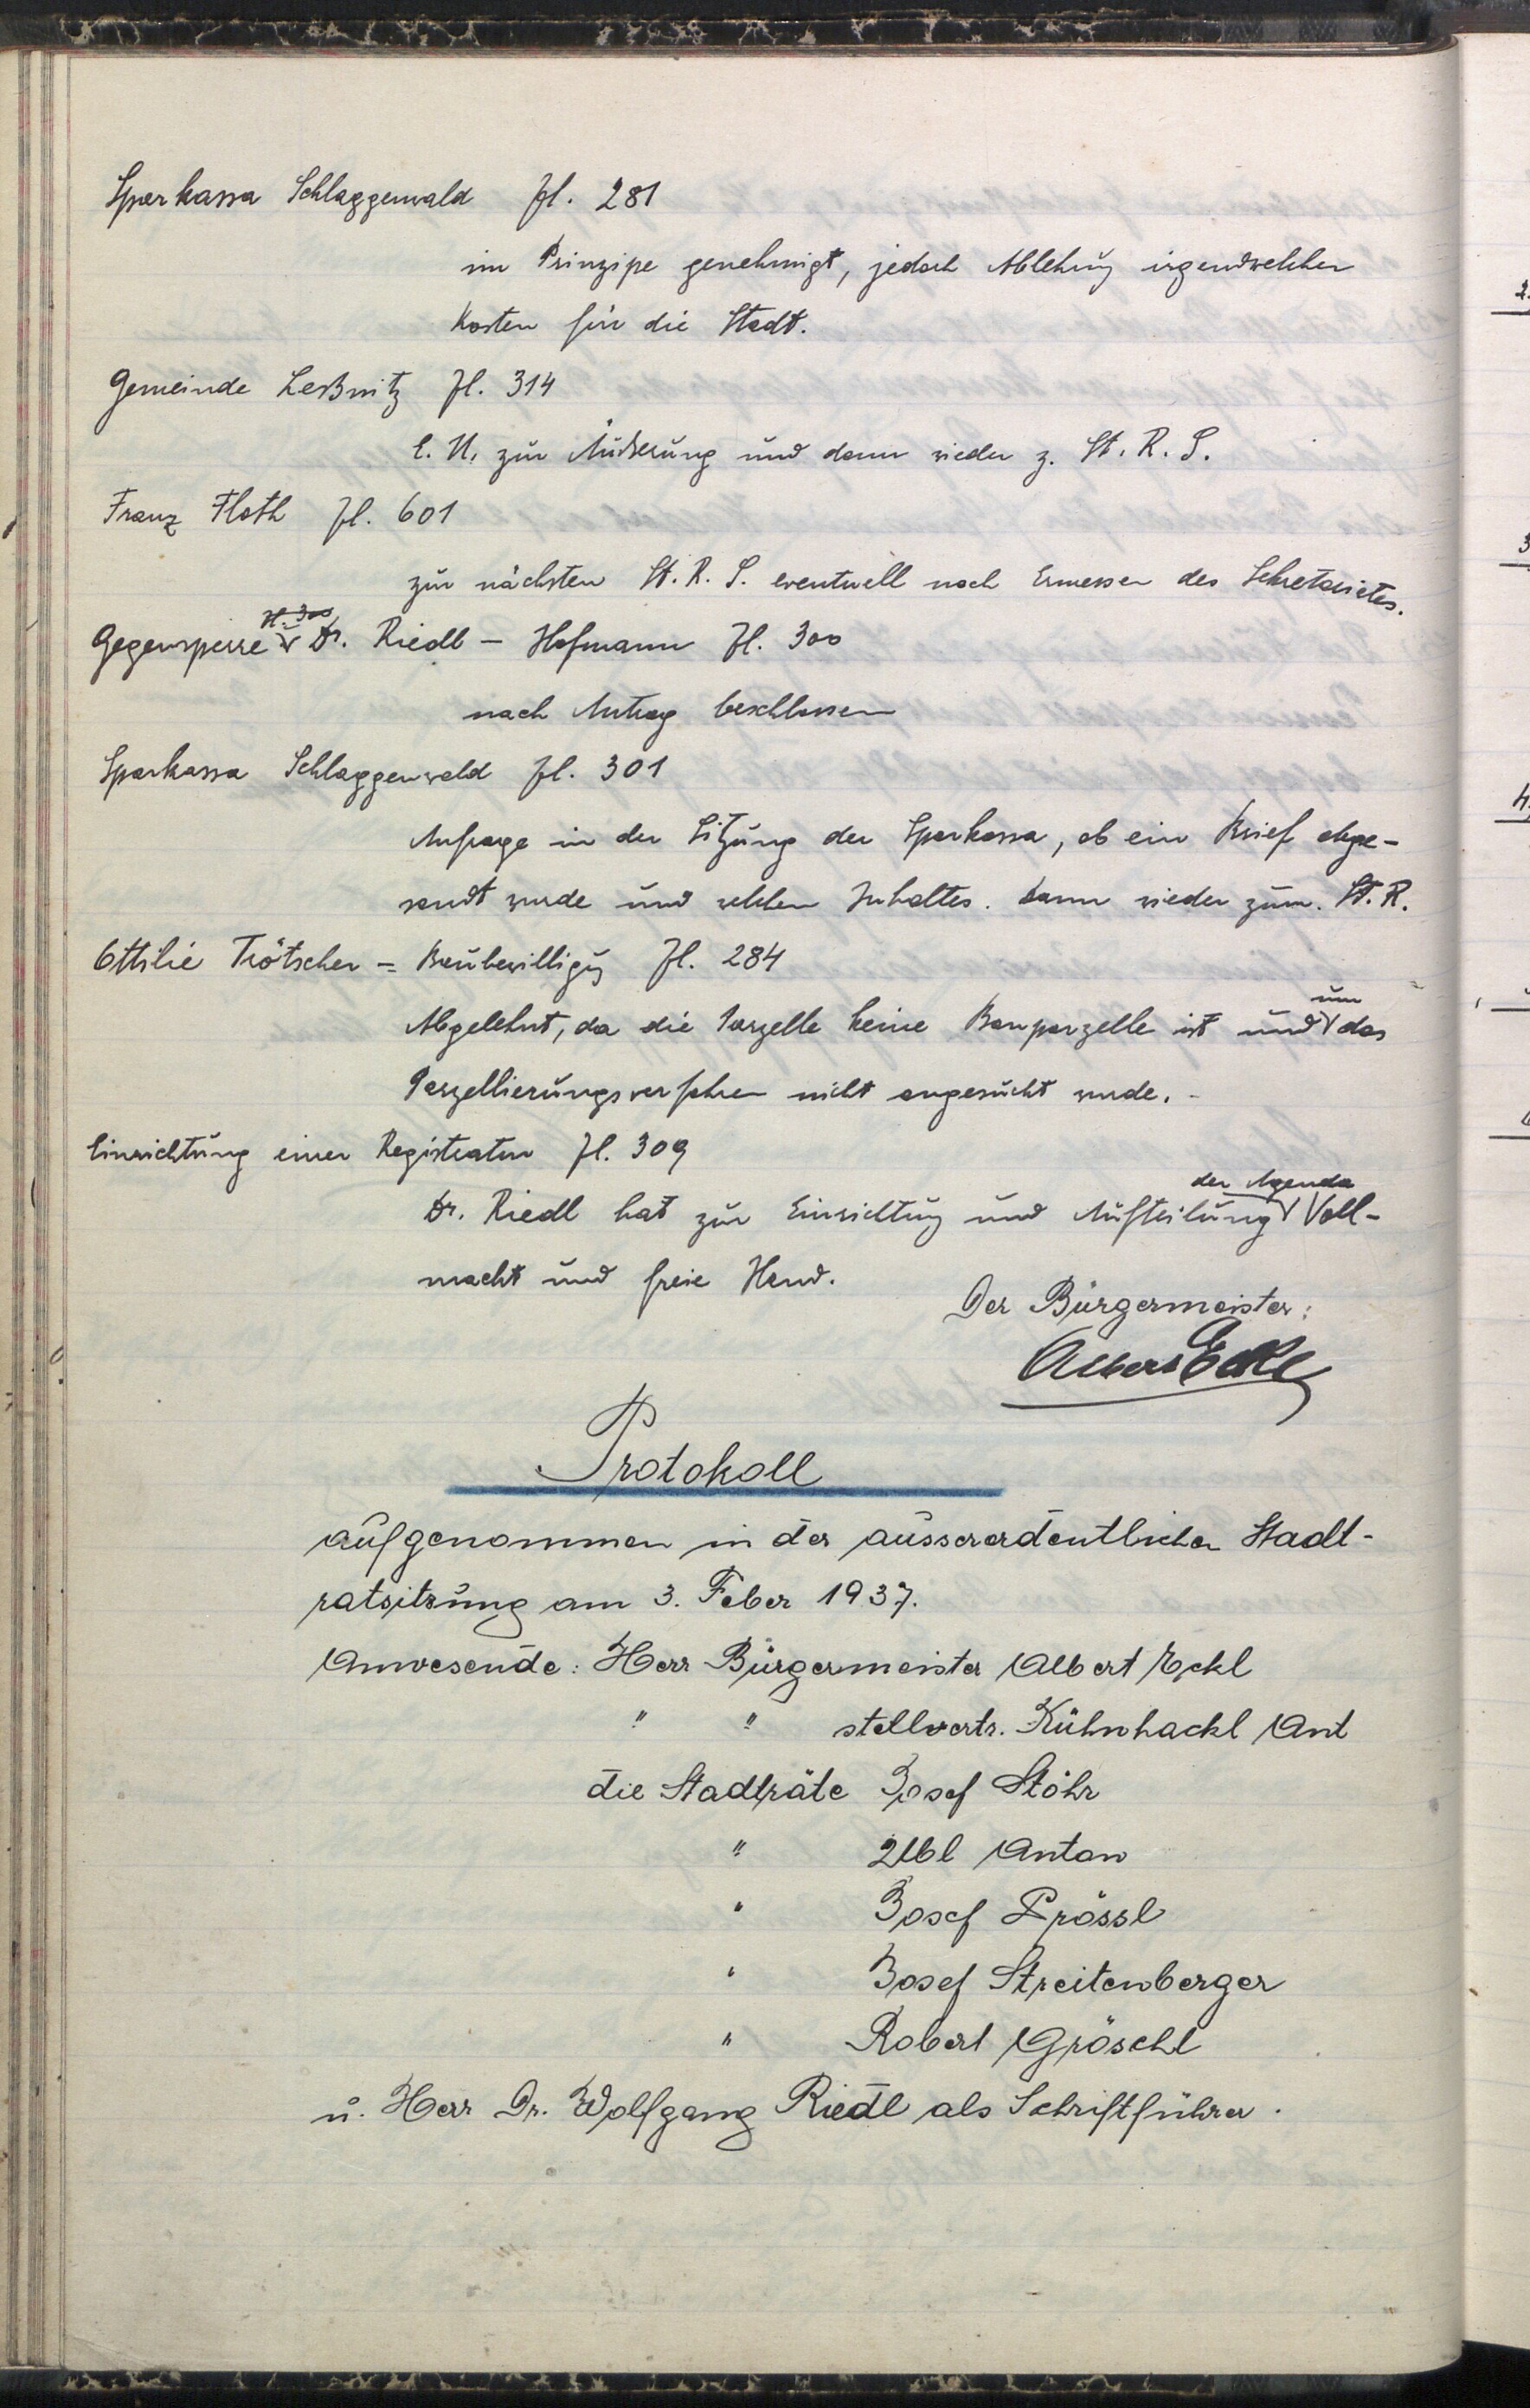 Sparkassa Schlaggenwald Zl. 281
im Prinzipe genehmigt, jedoch Ablehng irgendwelcher
Kosten für die Stadt.
Gemeinde Leßnitz Zl. 314
E. U. zur Äußerung und dann wieder z. St. R. S.
Franz Floth Zl. 601
zur nächsten St. R. S. eventuell nach Ermessen des Sekretariates.
Gegensperre Dr. Riedl - Hofmann Zl. 300
nach Antrag beschlossen
Sparkassa Schlaggenwald Zl. 301
Anfrage in der Sitzung der Sparkassa, ob ein Brief abge-
sandt wurde und welchen Inhaltes. Dann wieder zum St. R.
Ottilie Trötscher = Baubewilligg Zl. 284
Abgelehnt, da die Parzelle keine Bauparzelle ist und um das
Parzellierungsverfahren nicht angesucht wurde. -
Einrichtung einer Registratur Zl. 309
Dr. Riedl hat zur Einrichtung und Aufteilung der Agenda Voll-
macht und freie Hand.
Der Bürgermeister:
Albert Eckl
Protokoll
aufgenommen in der ausserordentlichen Stadt-
ratsitzung am 3. Feber 1937.
Anwesende: Herr Bürgermeister Albert Eckl
" " stellvertr. Kühnhackl Ant
die Stadträte Josef Stöhr
" Ubl Anton
" Josef Prössl
" Josef Streitenberger
" Robert Gröschl
u. Herr Dr. Wolfgang Riedl als Schriftführer.